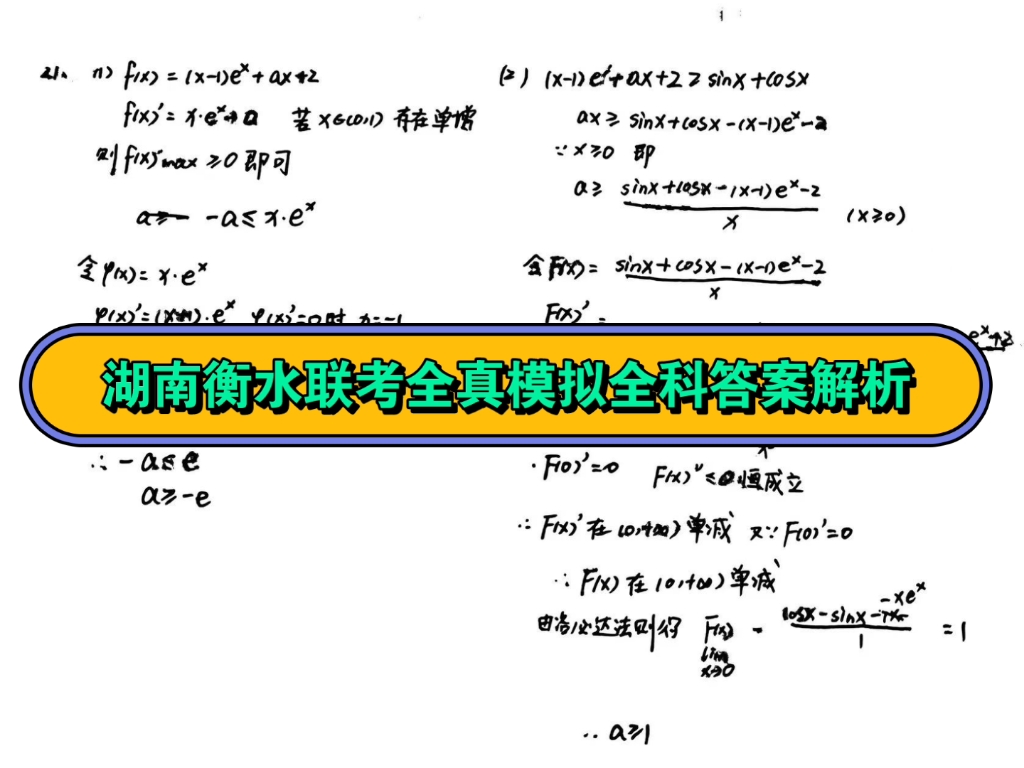 21、(1) f(x) = (x-1)e^x + ax+2
f(x)' = x·e^x + a 若 x∈(0,1) 存在单增
则 f(x)'max ≥0 即可
-a ≤ x·e^x
令 φ(x) = x·e^x
φ(x)' = (x+1)·e^x φ(x)'=0时 x=-1
∴ -a ≤ e
a ≥ -e
(2) (x-1)e^x + ax+2 ≥ sinx+cosx
ax ≥ sinx+cosx-(x-1)e^x-2
∵ x≥0 即
a ≥ sinx+cosx-(x-1)e^x-2
x (x≥0)
令 F(x) = sinx+cosx-(x-1)e^x-2
x
F(x)' =
e^x+2
湖南衡水联考全真模拟全科答案解析
F(0)'=0 F(x)'' ≤0恒成立
∴ F(x)' 在 (0,+∞) 单减 又∵ F(0)'=0
∴ F(x) 在 (0,+∞) 单减
由洛必达法则得 F(x) = cosx-sinx-xe^x = 1
lim 1
x→0
∴ a≥1